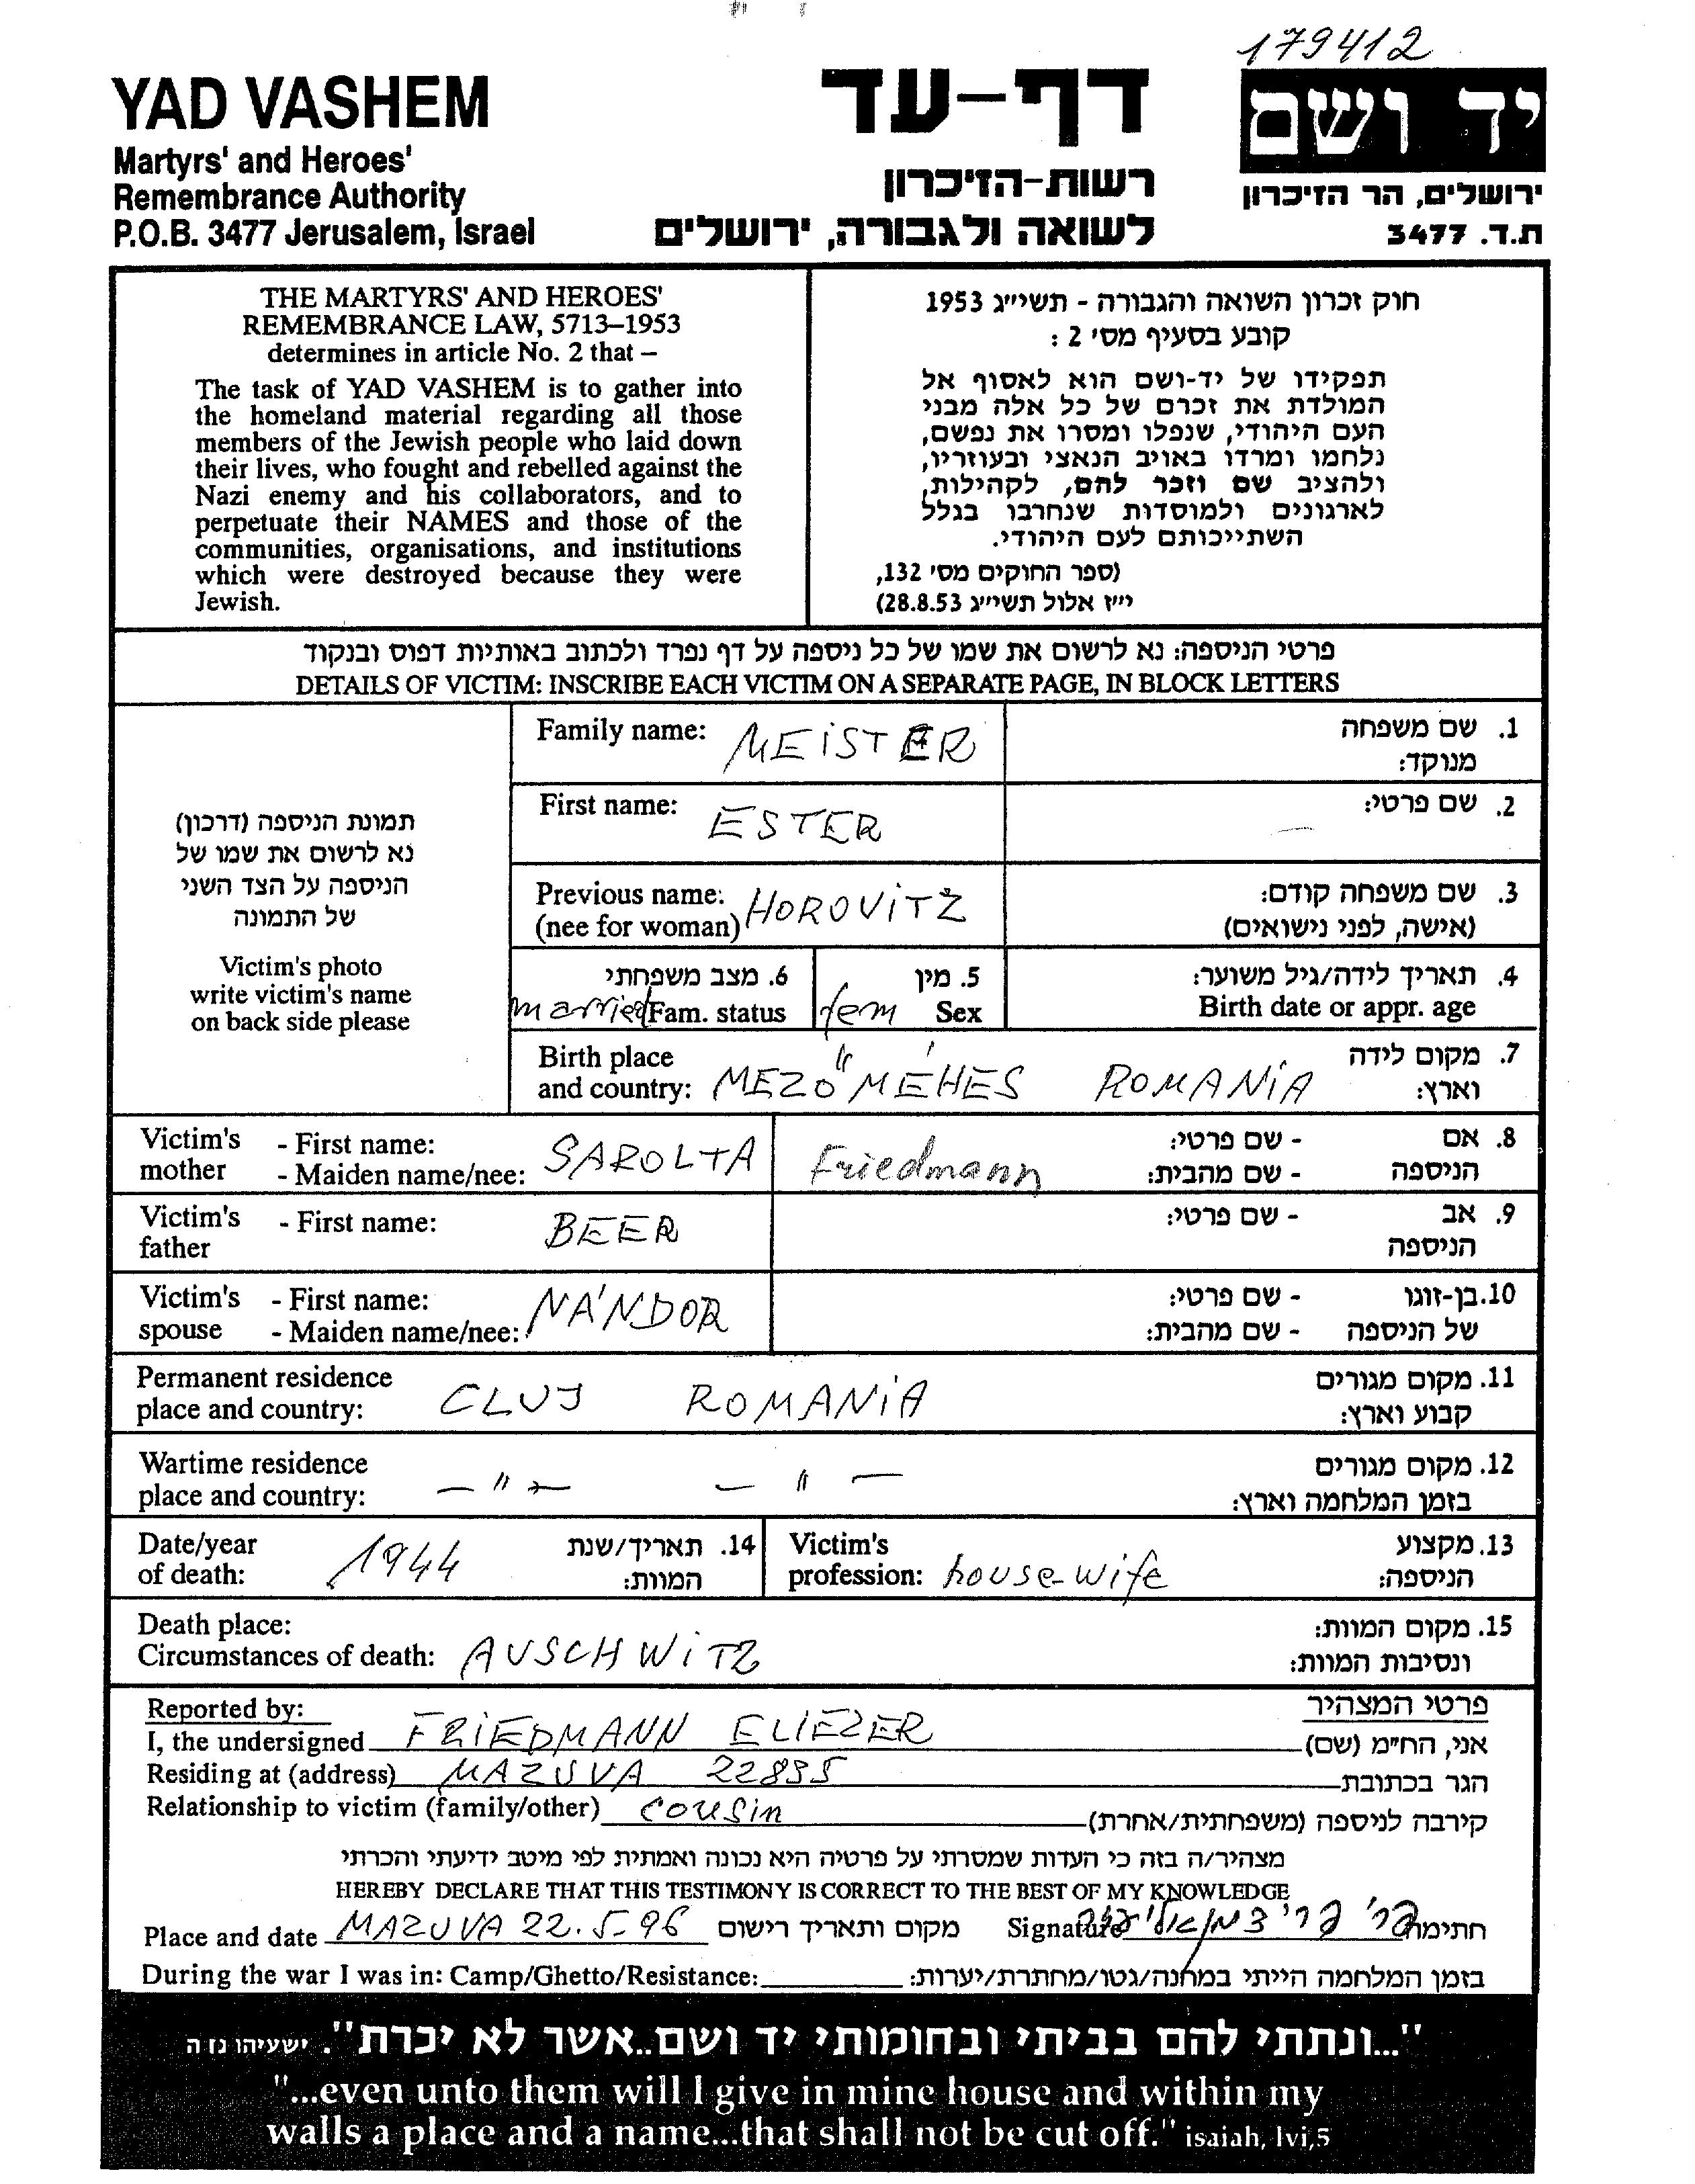 179412
YAD VASHEM
Martyrs' and Heroes'
Remembrance Authority
P.O.B. 3477 Jerusalem, Israel
דף-עד
רשות-הזיכרון
לשואה ולגבורה, ירושלים
יד ושם
ירושלים, הר הזיכרון
ת.ד. 3477
THE MARTYRS' AND HEROES'
REMEMBRANCE LAW, 5713–1953
determines in article No. 2 that –
The task of YAD VASHEM is to gather into
the homeland material regarding all those
members of the Jewish people who laid down
their lives, who fought and rebelled against the
Nazi enemy and his collaborators, and to
perpetuate their NAMES and those of the
communities, organisations, and institutions
which were destroyed because they were
Jewish.
חוק זכרון השואה והגבורה - תשי״ג 1953
קובע בסעיף מס׳ 2 :
תפקידו של יד-ושם הוא לאסוף אל
המולדת את זכרם של כל אלה מבני
העם היהודי, שנפלו ומסרו את נפשם,
נלחמו ומרדו באויב הנאצי ובעוזריו,
ולהציב שם וזכר להם, לקהילות,
לארגונים ולמוסדות שנחרבו בגלל
השתייכותם לעם היהודי.
(ספר החוקים מס׳ 132,
י״ז אלול תשי״ג 28.8.53)
פרטי הניספה: נא לרשום את שמו של כל ניספה על דף נפרד ולכתוב באותיות דפוס ובנקוד
DETAILS OF VICTIM: INSCRIBE EACH VICTIM ON A SEPARATE PAGE, IN BLOCK LETTERS
תמונת הניספה (דרכון)
נא לרשום את שמו של
הניספה על הצד השני
של התמונה
Victim's photo
write victim's name
on back side please
Family name: MEiSTER 1. שם משפחה
מנוקד:
First name: ESTER 2. שם פרטי:
Previous name: HOROViTZ 3. שם משפחה קודם:
(nee for woman) (אישה, לפני נישואים)
6. מצב משפחתי 5. מין 4. תאריך לידה/גיל משוער:
married Fam. status fem Sex Birth date or appr. age
Birth place 7. מקום לידה
and country: MEZŐMÉHES ROMANiA וארץ:
Victim's - First name: SAROLTA Friedmann - שם פרטי: 8. אם
mother - Maiden name/nee: - שם מהבית: הניספה
Victim's - First name: BEER - שם פרטי: 9. אב
father הניספה
Victim's - First name: NÁNDOR - שם פרטי: 10. בן-זוגו
spouse - Maiden name/nee: - שם מהבית: של הניספה
Permanent residence 11. מקום מגורים
place and country: CLUJ ROMANiA קבוע וארץ:
Wartime residence 12. מקום מגורים
place and country: — " — — " — בזמן המלחמה וארץ:
Date/year 14. תאריך/שנת Victim's 13. מקצוע
of death: 1944 המוות: profession: house-wife הניספה:
Death place: 15. מקום המוות:
Circumstances of death: AUSCHWiTZ ונסיבות המוות:
Reported by: פרטי המצהיר
I, the undersigned FRiEDMANN ELiEZER אני, הח״מ (שם)
Residing at (address) MAZUVA 22835 הגר בכתובת
Relationship to victim (family/other) cousin קירבה לניספה (משפחתית/אחרת)
מצהיר/ה בזה כי העדות שמסרתי על פרטיה היא נכונה ואמתית לפי מיטב ידיעתי והכרתי
HEREBY DECLARE THAT THIS TESTIMONY IS CORRECT TO THE BEST OF MY KNOWLEDGE
Place and date MAZUVA 22.5-96 מקום ותאריך רישום Signature חתימה
During the war I was in: Camp/Ghetto/Resistance: בזמן המלחמה הייתי במחנה/גטו/מחתרת/יערות:
"...ונתתי להם בביתי ובחומותי יד ושם..אשר לא יכרת". ישעיהו נז ה
"...even unto them will I give in mine house and within my
walls a place and a name...that shall not be cut off." isaiah, lvi,5